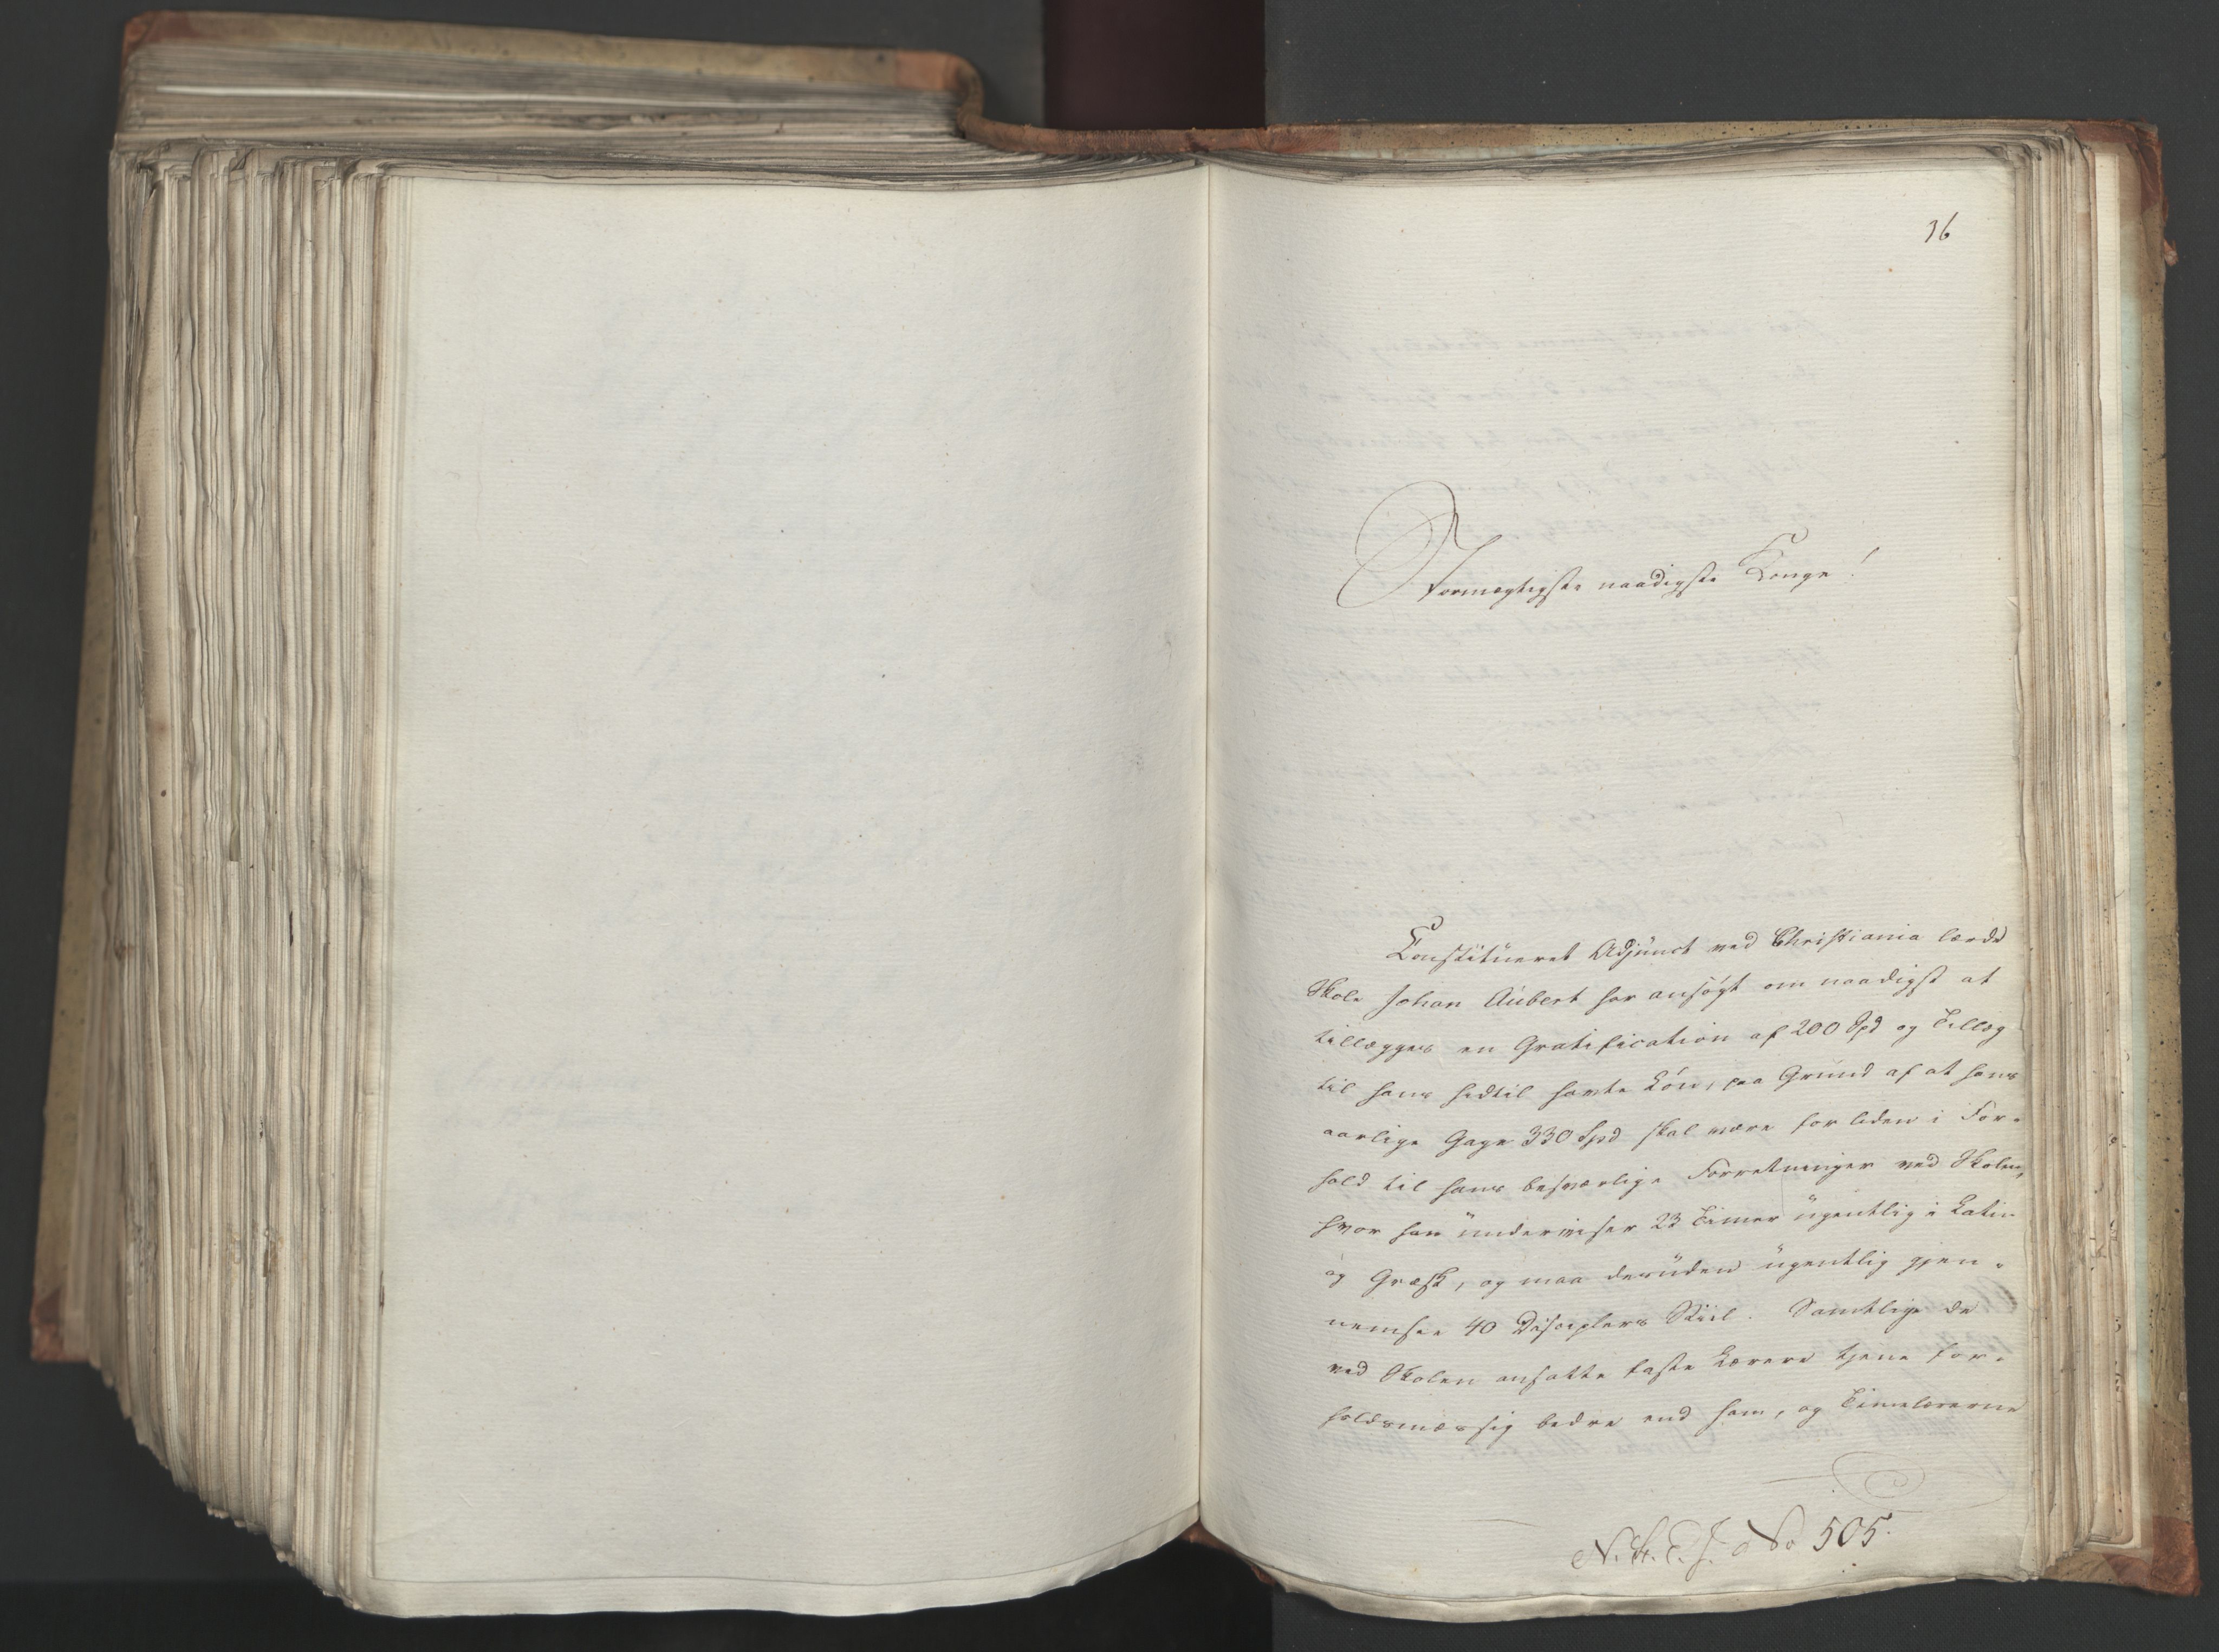 36
Stormægtigste naadigste Konge!
Constitueret Adjunct ved Christiania lærde
Skole Johan Aubert har ansøgt om naadigst at
tillægges en Gratification af 200 Spd og Tillæg
til hans hidtil havte Løn, paa Grund af at hans
aarlige Gage 330 Spd skal være for liden i For-
hold til hans besværlige Forretninger ved Skolen,
hvor han underviser 23 Timer ugentlig i Latin
og Græsk, og maa desuden ugentlig gjen-
nemsee 40 Disciplers Stiil. Samtlige de
ved Skolen ansatte faste Lærere tjene for-
holdsmæssig bedre end ham, og Timelærerne
No 505.